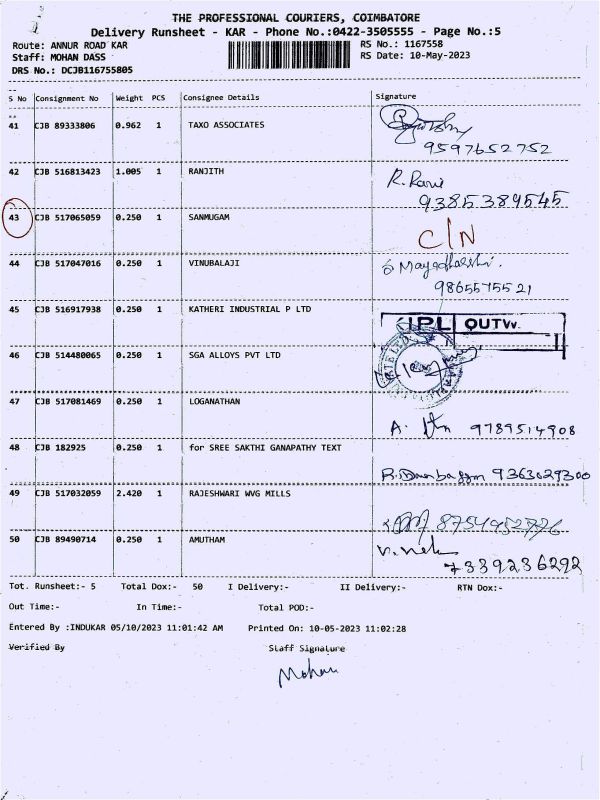 THE PROFESSIONAL COURIERS, COIMBATORE
Delivery Runsheet - KAR - Phone No.:0422-3505555 - Page No.:5
Route: ANNUR ROAD KAR RS No.: 1167558
Staff: MOHAN DASS RS Date: 10-May-2023
DRS No.: DCJB116755805
S No Consignment No Weight PCS Consignee Details Signature
41 CJB 89333806 0.962 1 TAXO ASSOCIATES
9597652752
42 CJB 516813423 1.005 1 RANJITH R. Rani
9385389545
43 CJB 517065059 0.250 1 SANMUGAM
C/N
44 CJB 517047016 0.250 1 VINUBALAJI
9865575521
45 CJB 516917938 0.250 1 KATHERI INDUSTRIAL P LTD
IPL OUTW.
46 CJB 514480065 0.250 1 SGA ALLOYS PVT LTD
47 CJB 517081469 0.250 1 LOGANATHAN
A. 9789514908
48 CJB 182925 0.250 1 for SREE SAKTHI GANAPATHY TEXT
9363029300
49 CJB 517032059 2.420 1 RAJESHWARI WVG MILLS
8754952776
50 CJB 89490714 0.250 1 AMUTHAM
7339236292
Tot. Runsheet:- 5 Total Dox:- 50 I Delivery:- II Delivery:- RTN Dox:-
Out Time:- In Time:- Total POD:-
Entered By :INDUKAR 05/10/2023 11:01:42 AM Printed On: 10-05-2023 11:02:28
Verified By Staff Signature
Mohan